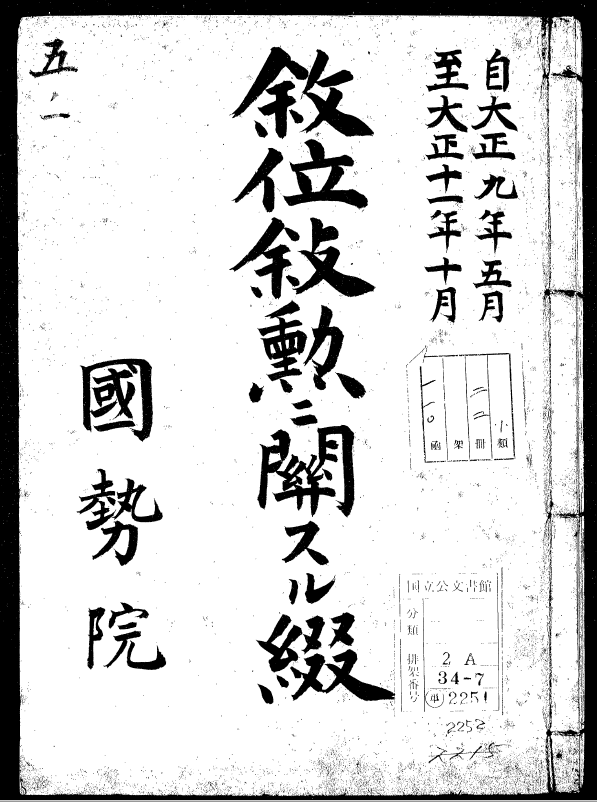 自大正九年五月
至大正十一年十月
敘位敘勲ニ關スル綴
國勢院
五ノ一
類
冊
架
函
二二
一一〇
国立公文書館
分類
排架番号
2 A
34-7
2251
2252